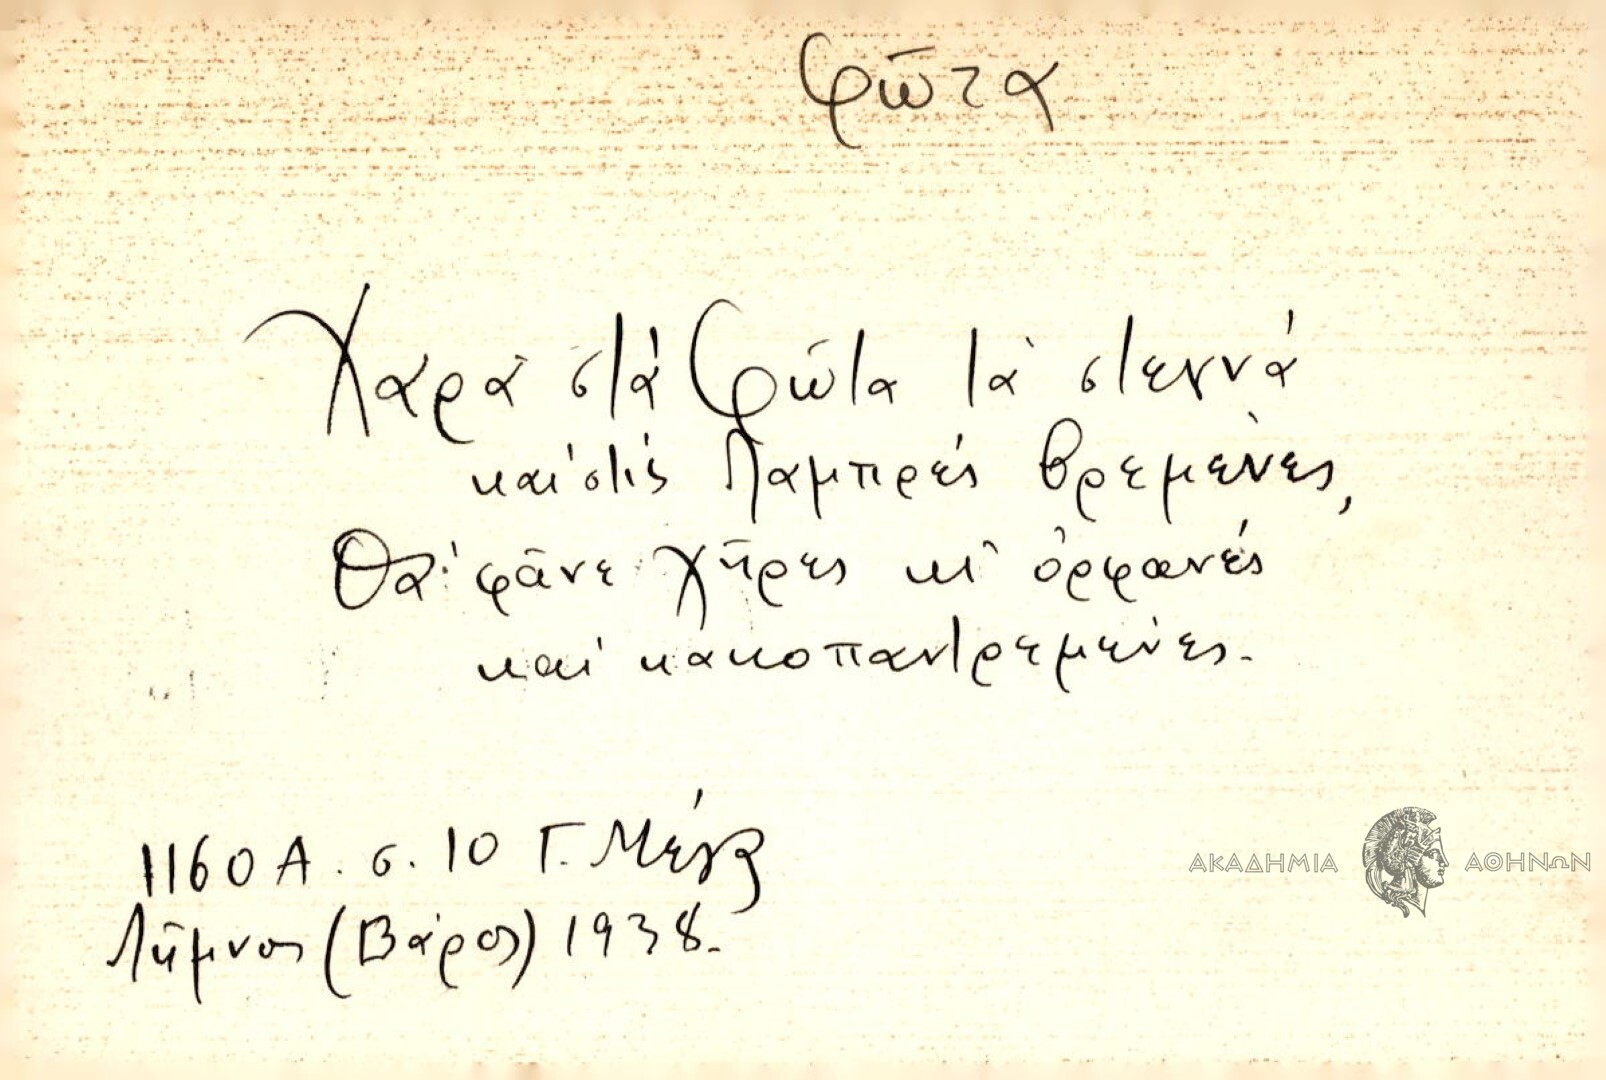 Φῶτα
Χαρὰ στὰ Φῶτα τὰ στεγνά
καὶ στὶς Λαμπρές βρεμένες,
Θὰ φᾶνε χῆρες κι ὀρφανές
καὶ κακοπαντρεμένες.
1160 Α. σ. 10 Γ. Μέγα
Λῆμνος (Βάρος) 1938.
ΑΚΑΔΗΜΙΑ ΑΘΗΝΩΝ